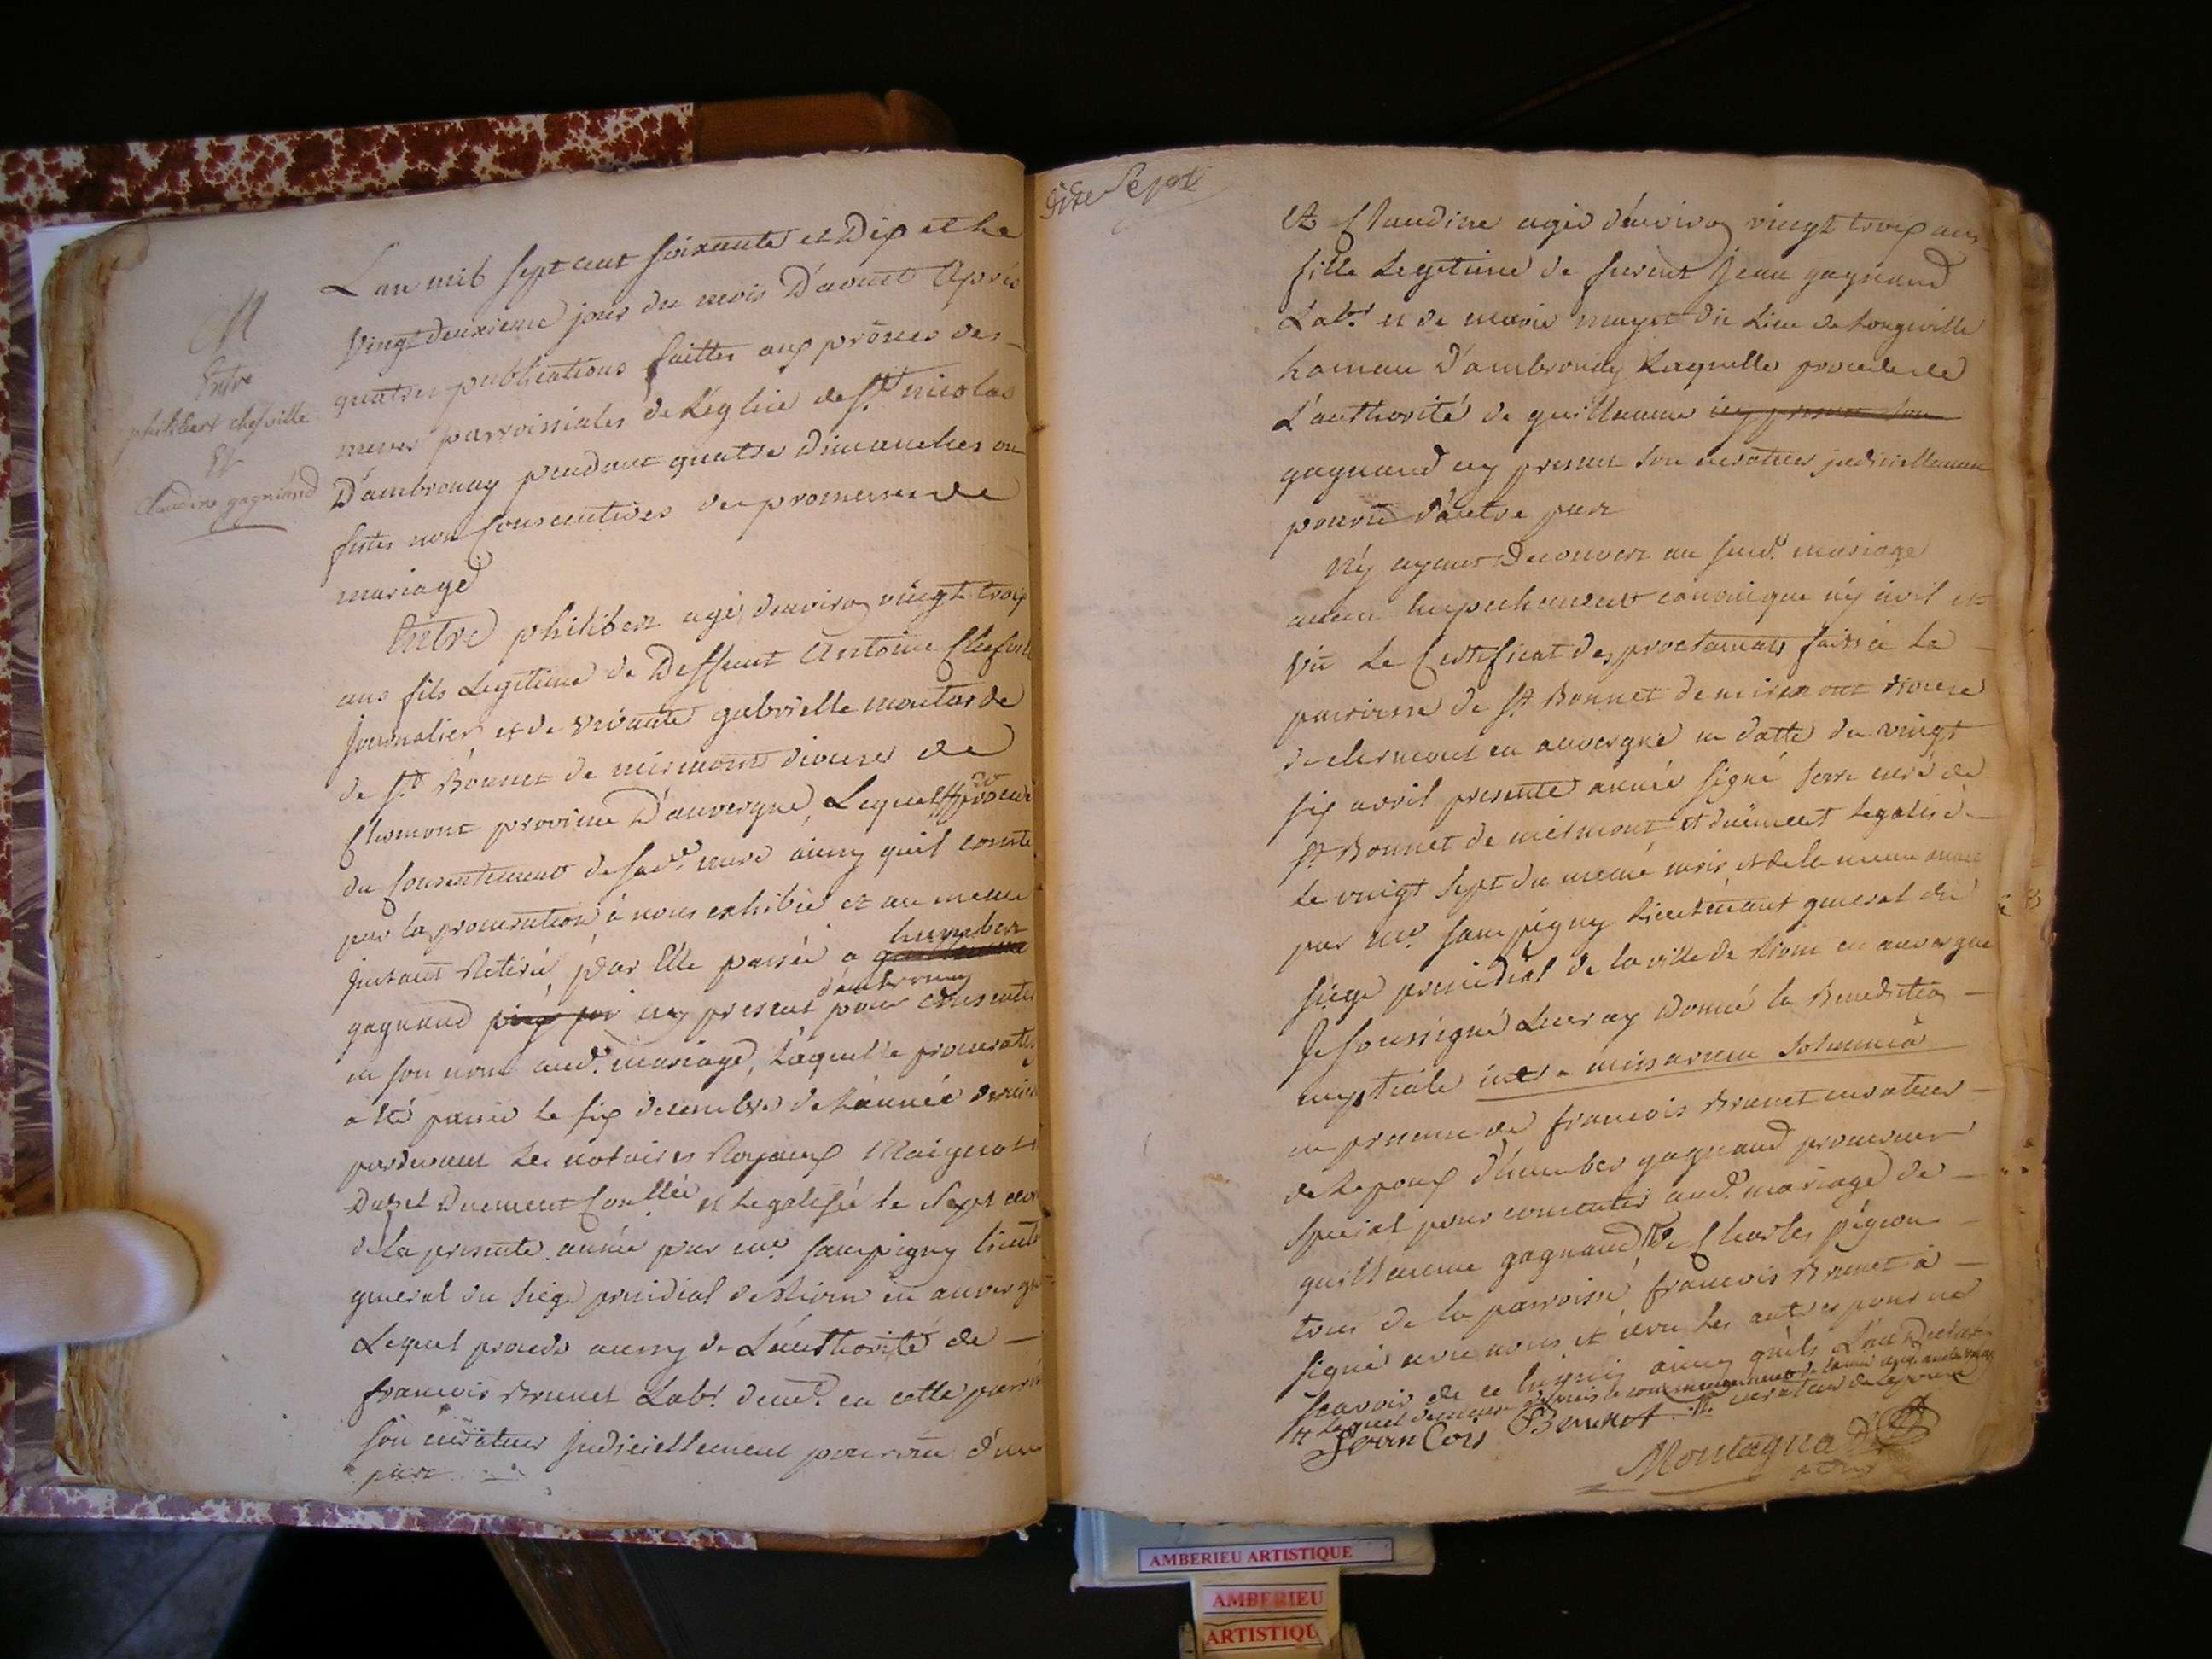 M
Entre
philibert chefville
Et
Claudine gagniand
L'an mil sept cent soixante et Dix et le
vingt deuxieme jour du mois D'aoust Aprés
quatre publications faittes aux prônes des
messes parroissiales de Léglise de St nicolas
D'ambronay pendant quatre dimanches ou
festes non Consecutives de promesse de
mariage
Entre philibert agé d'environ vingt trois
ans fils Legitime de Deffunt Antoine
Journalier et de vivante gabrielle moutarde
de St Bonnet de mirmont diocese de
Clermont province D'auvergne, Lequel procede
du Consentement de sad. mere ainsy quil conste
par la procuration à nous exhibée et au meme
Instant Retirée, par Elle passée a humbert
gagnand d'ambronay icy present pour consentir
en son nom aud. mariage, Laquelle procuration
a été passée le six decembre de L'année derniere
pardevant les notaires Royaux
duement et Legalisée le sept
de la presente année par me. sampigny lieut
general du siege presidial de Riom en auvergne
Lequel procede aussy de L'authorité de
francois Brunet Labr. dem. en cette parroisse
son curateur Judiciellement pourvu d'une
part
dixe Sept
Et Claudine agée d'environ vingt trois ans
fille Legitime de furent Jean gagnand
Labr. et de marie mayet du Lieu de Longeville
hameau D'ambronay Laquelle procede de
L'authorité de guillaume icy present son
gagnand icy present son curateur judiciellement
pourvu d'autre part
N'y ayant Decouvert au susd. mariage
aucun Empechement canonique n'y civil et
vu Le Certificat des proclamats faits à La
parroisse de St Bonnet de miremont diocese
de clermont en auvergne en datte du vingt
six avril presente année signé serre curé de
St Bonnet de mirmont et duement Legalisé
le vingt sept du meme mois et de la meme année
par me. sampigny Lieutenant general du
siege presidial de la ville de Riom en auvergne
Je soussigné Leur ay Donné la Benediction
nuptiale intra missarum solemnia
en presence de francois Brunet curateur
de Lepoux d'humbert gagnand procureur
special pour consentir aud. mariage de
guillaume gagnand de Charles pégeon
tous de la parroisse, francois Brunet à
signé avec nous et non les autres pour ne
scavoir de ce Enquis ainsy quils L'on Declaré
lequel demeure depuis le commencement de
francois Brunet curateur de lepoux
Montagnad